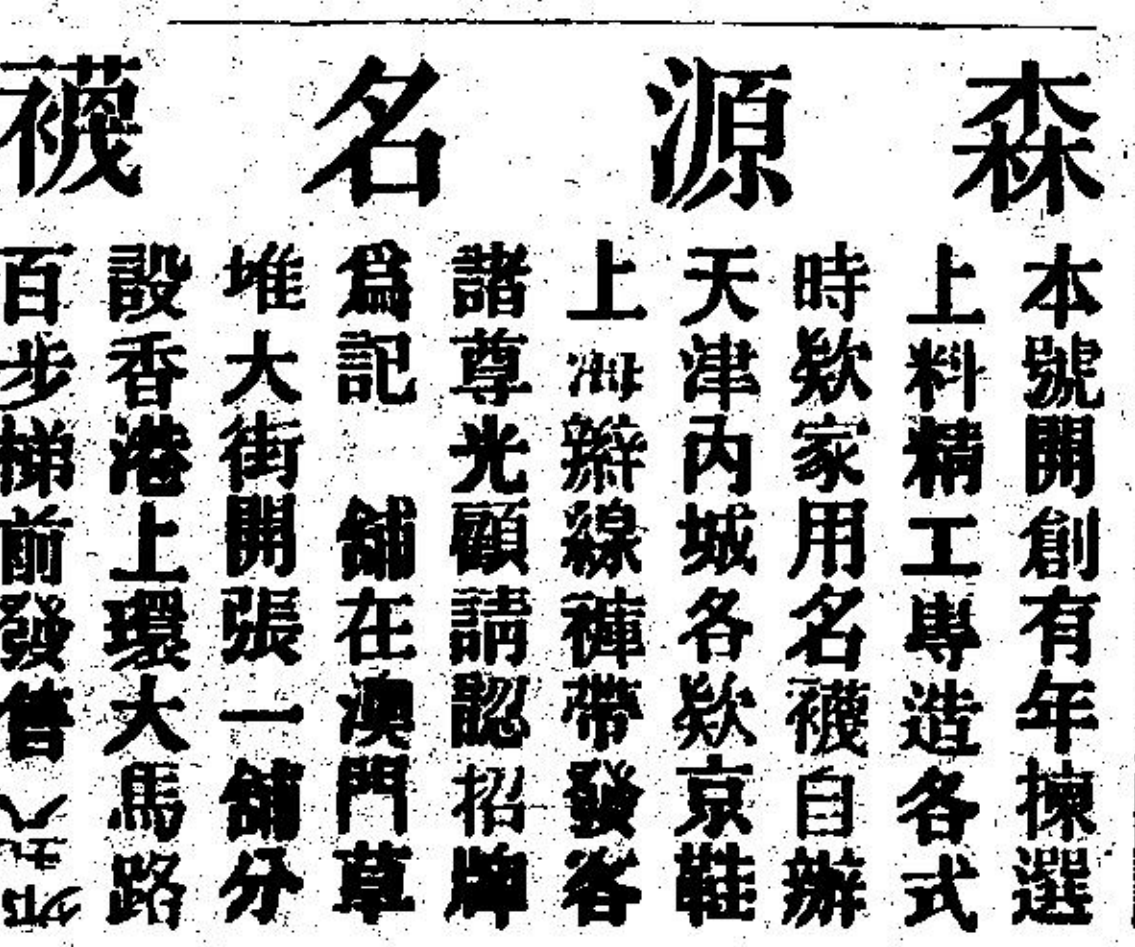 森源名襪
本號開創有年揀選
上料精工專造各式
時欵家用名襪自辦
天津內城各欵京鞋
上海辮線褲帶發客
諸尊光顧請認招牌
爲記　舖在澳門草
堆大街開張一舖分
設香港上環大馬路
百步梯前發售